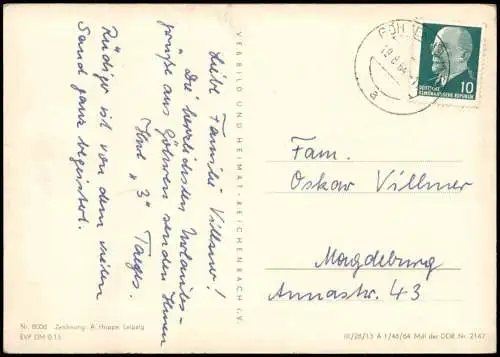 Liebe Familie Villmer!
Die herzlichsten Urlaubs-
grüße aus Göhren senden Ihnen
Ihre „3" Tags.
Rüdiger ist von dem vielen
Sand ganz begeistert.
VERBILD UND HEIMAT · REICHENBACH i. V.
19.8.64
a
10
DEUTSCHE
DEMOKRATISCHE REPUBLIK
Fam.
Oskar Villmer
Magdeburg
Annastr. 43
Nr. 8006 Zeichnung: A. Hoppe, Leipzig
EVP DM 0.15
III/26/13 A 1/46/64 MdI der DDR Nr. 2147